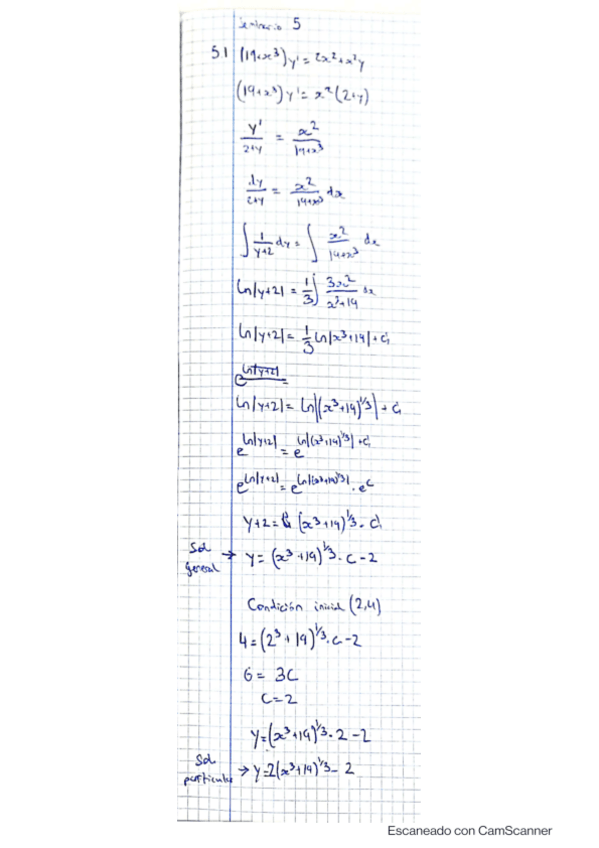 Seminario 5
5.1 (19+x³)y' = 2x²+x²y
(19+x³)y' = x²(2+y)
y'/(2+y) = x²/(19+x³)
dy/(2+y) = x²/(19+x³) dx
∫ 1/(y+2) dy = ∫ x²/(19+x³) dx
ln|y+2| = 1/3 ∫ 3x²/(x³+19) dx
ln|y+2| = 1/3 ln|x³+19| + C₁
e^(ln|y+2|) =
ln|y+2| = ln|(x³+19)^(1/3)| + C₁
e^(ln|y+2|) = e^(ln|(x³+19)^(1/3)| + C₁)
e^(ln|y+2|) = e^(ln|(x³+19)^(1/3)|) · e^C
y+2 = (x³+19)^(1/3) · C₁
Sol general → y = (x³+19)^(1/3) · C - 2
Condición inicial (2,4)
4 = (2³+19)^(1/3) · C - 2
6 = 3C
C = 2
y = (x³+19)^(1/3) · 2 - 2
Sol particular → y = 2(x³+19)^(1/3) - 2
Escaneado con CamScanner